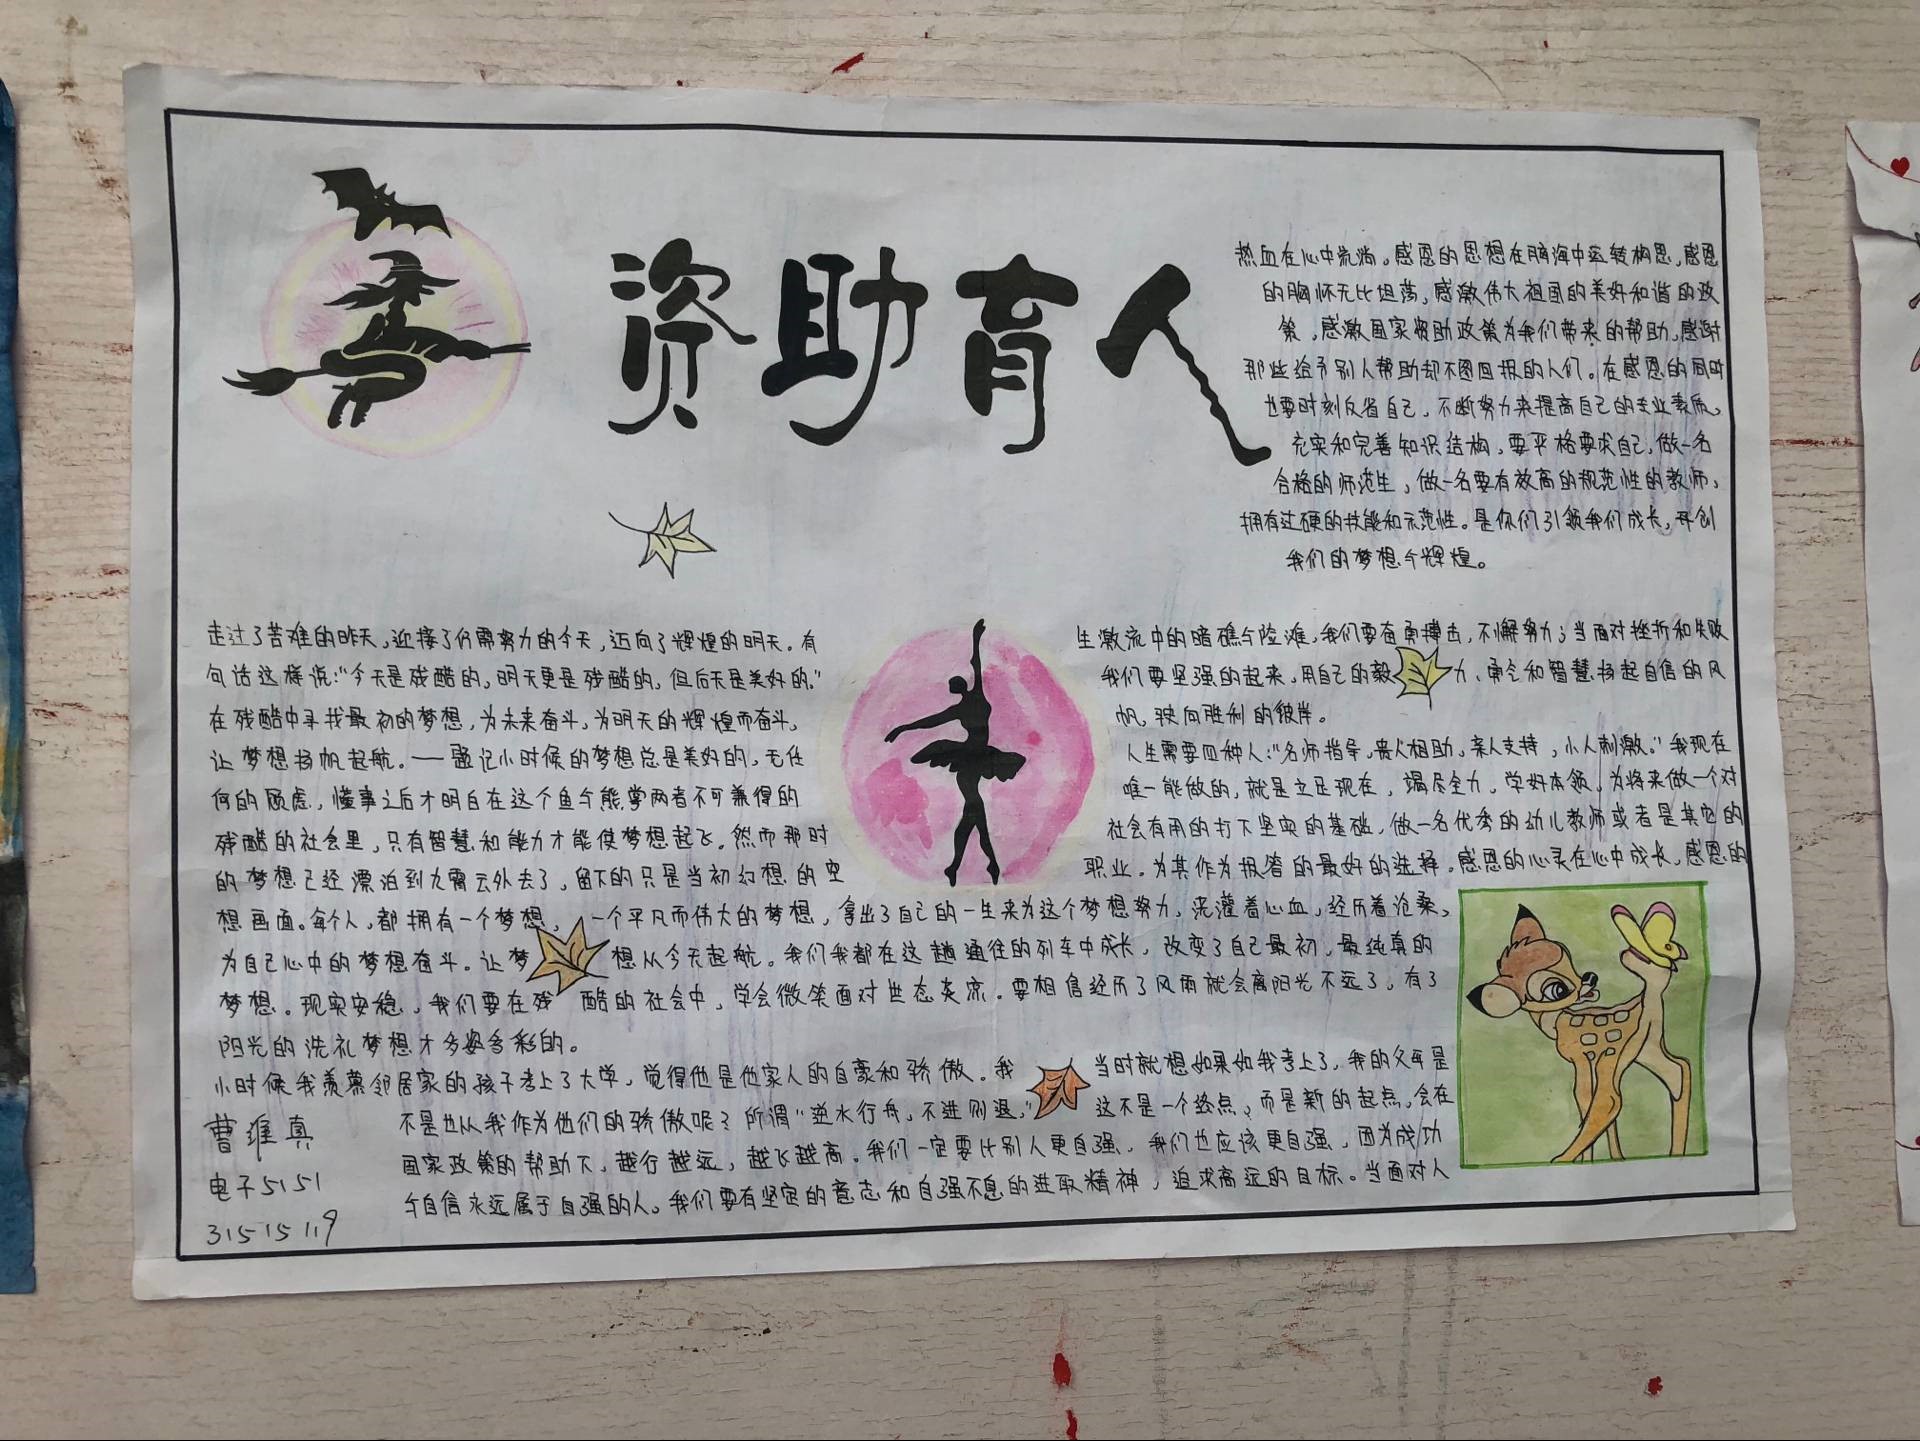 资助育人
走过了苦难的昨天，迎接了仍需努力的今天，迈向了辉煌的明天。有
句话这样说：“今天是残酷的，明天更是残酷的，但后天是美好的。”
在残酷中寻找最初的梦想，为未来奋斗，为明天的辉煌而奋斗，
让梦想扬帆起航。——题记小时候的梦想总是美好的，无任
何的顾虑，懂事之后才明白在这个鱼与熊掌两者不可兼得的
残酷的社会里，只有智慧和能力才能使梦想起飞。然而那时
的梦想已经漂泊到九霄云外去了，留下的只是当初幻想的空
想画面。每个人，都拥有一个梦想，一个平凡而伟大的梦想，拿出了自己的一生来为这个梦想努力，浇灌着心血，经历着沧桑，
为自己心中的梦想奋斗。让梦想从今天起航。我们我都在这趟通往的列车中成长，改变了自己最初，最纯真的
梦想。现实安稳，我们要在残酷的社会中，学会微笑面对世态炎凉。要相信经历了风雨就会离阳光不远了，有了
阳光的洗礼梦想才多姿多彩的。
小时候我羡慕邻居家的孩子考上了大学，觉得他是他家人的自豪和骄傲。我当时就想如果如我考上了，我的父母是
不是也从我作为他们的骄傲呢？所谓“逆水行舟，不进则退，”这不是一个终点，而是新的起点，会在
国家政策的帮助下，越行越远，越飞越高。我们一定要比别人更自强，我们也应该更自强，因为成功
与自信永远属于自强的人。我们要有坚定的意志和自强不息的进取精神，追求高远的目标。当面对人
生激流中的暗礁与险滩，我们要奋勇搏击，不懈努力；当面对挫折和失败
我们要坚强的起来，用自己的毅力、勇气和智慧扬起自信的风
帆，驶向胜利的彼岸。
人生需要四种人：“名师指导，贵人相助，亲人支持，小人刺激。”我现在
唯一能做的，就是立足现在，竭尽全力，学好本领，为将来做一个对
社会有用的打下坚实的基础，做一名优秀的幼儿教师或者是其它的
职业。为其作为报答的最好的选择。感恩的心灵在心中成长，感恩的
热血在心中流淌。感恩的思想在脑海中运转构思，感恩
的胸怀无比坦荡，感激伟大祖国的美好和谐的政
策，感激国家资助政策为我们带来的帮助，感谢
那些给予别人帮助却不图回报的人们。在感恩的同时
也要时刻反省自己，不断努力来提高自己的专业素质，
充实和完善知识结构，要严格要求自己，做一名
合格的师范生，做一名要有效高的规范性的教师，
拥有过硬的技能和示范性。是你们引领我们成长，开创
我们的梦想与辉煌。
曹维真
电子5151
31515119